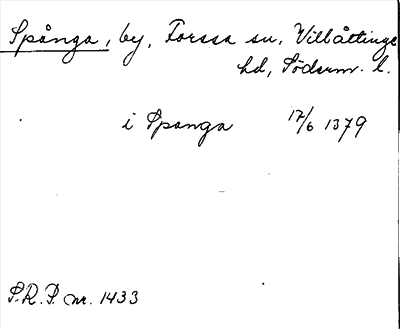 Spånga, by, Forssa sn, Villåttinge
hd, Söderm. l.
i Spanga 17/6 1379
S.R.P. nr. 1433